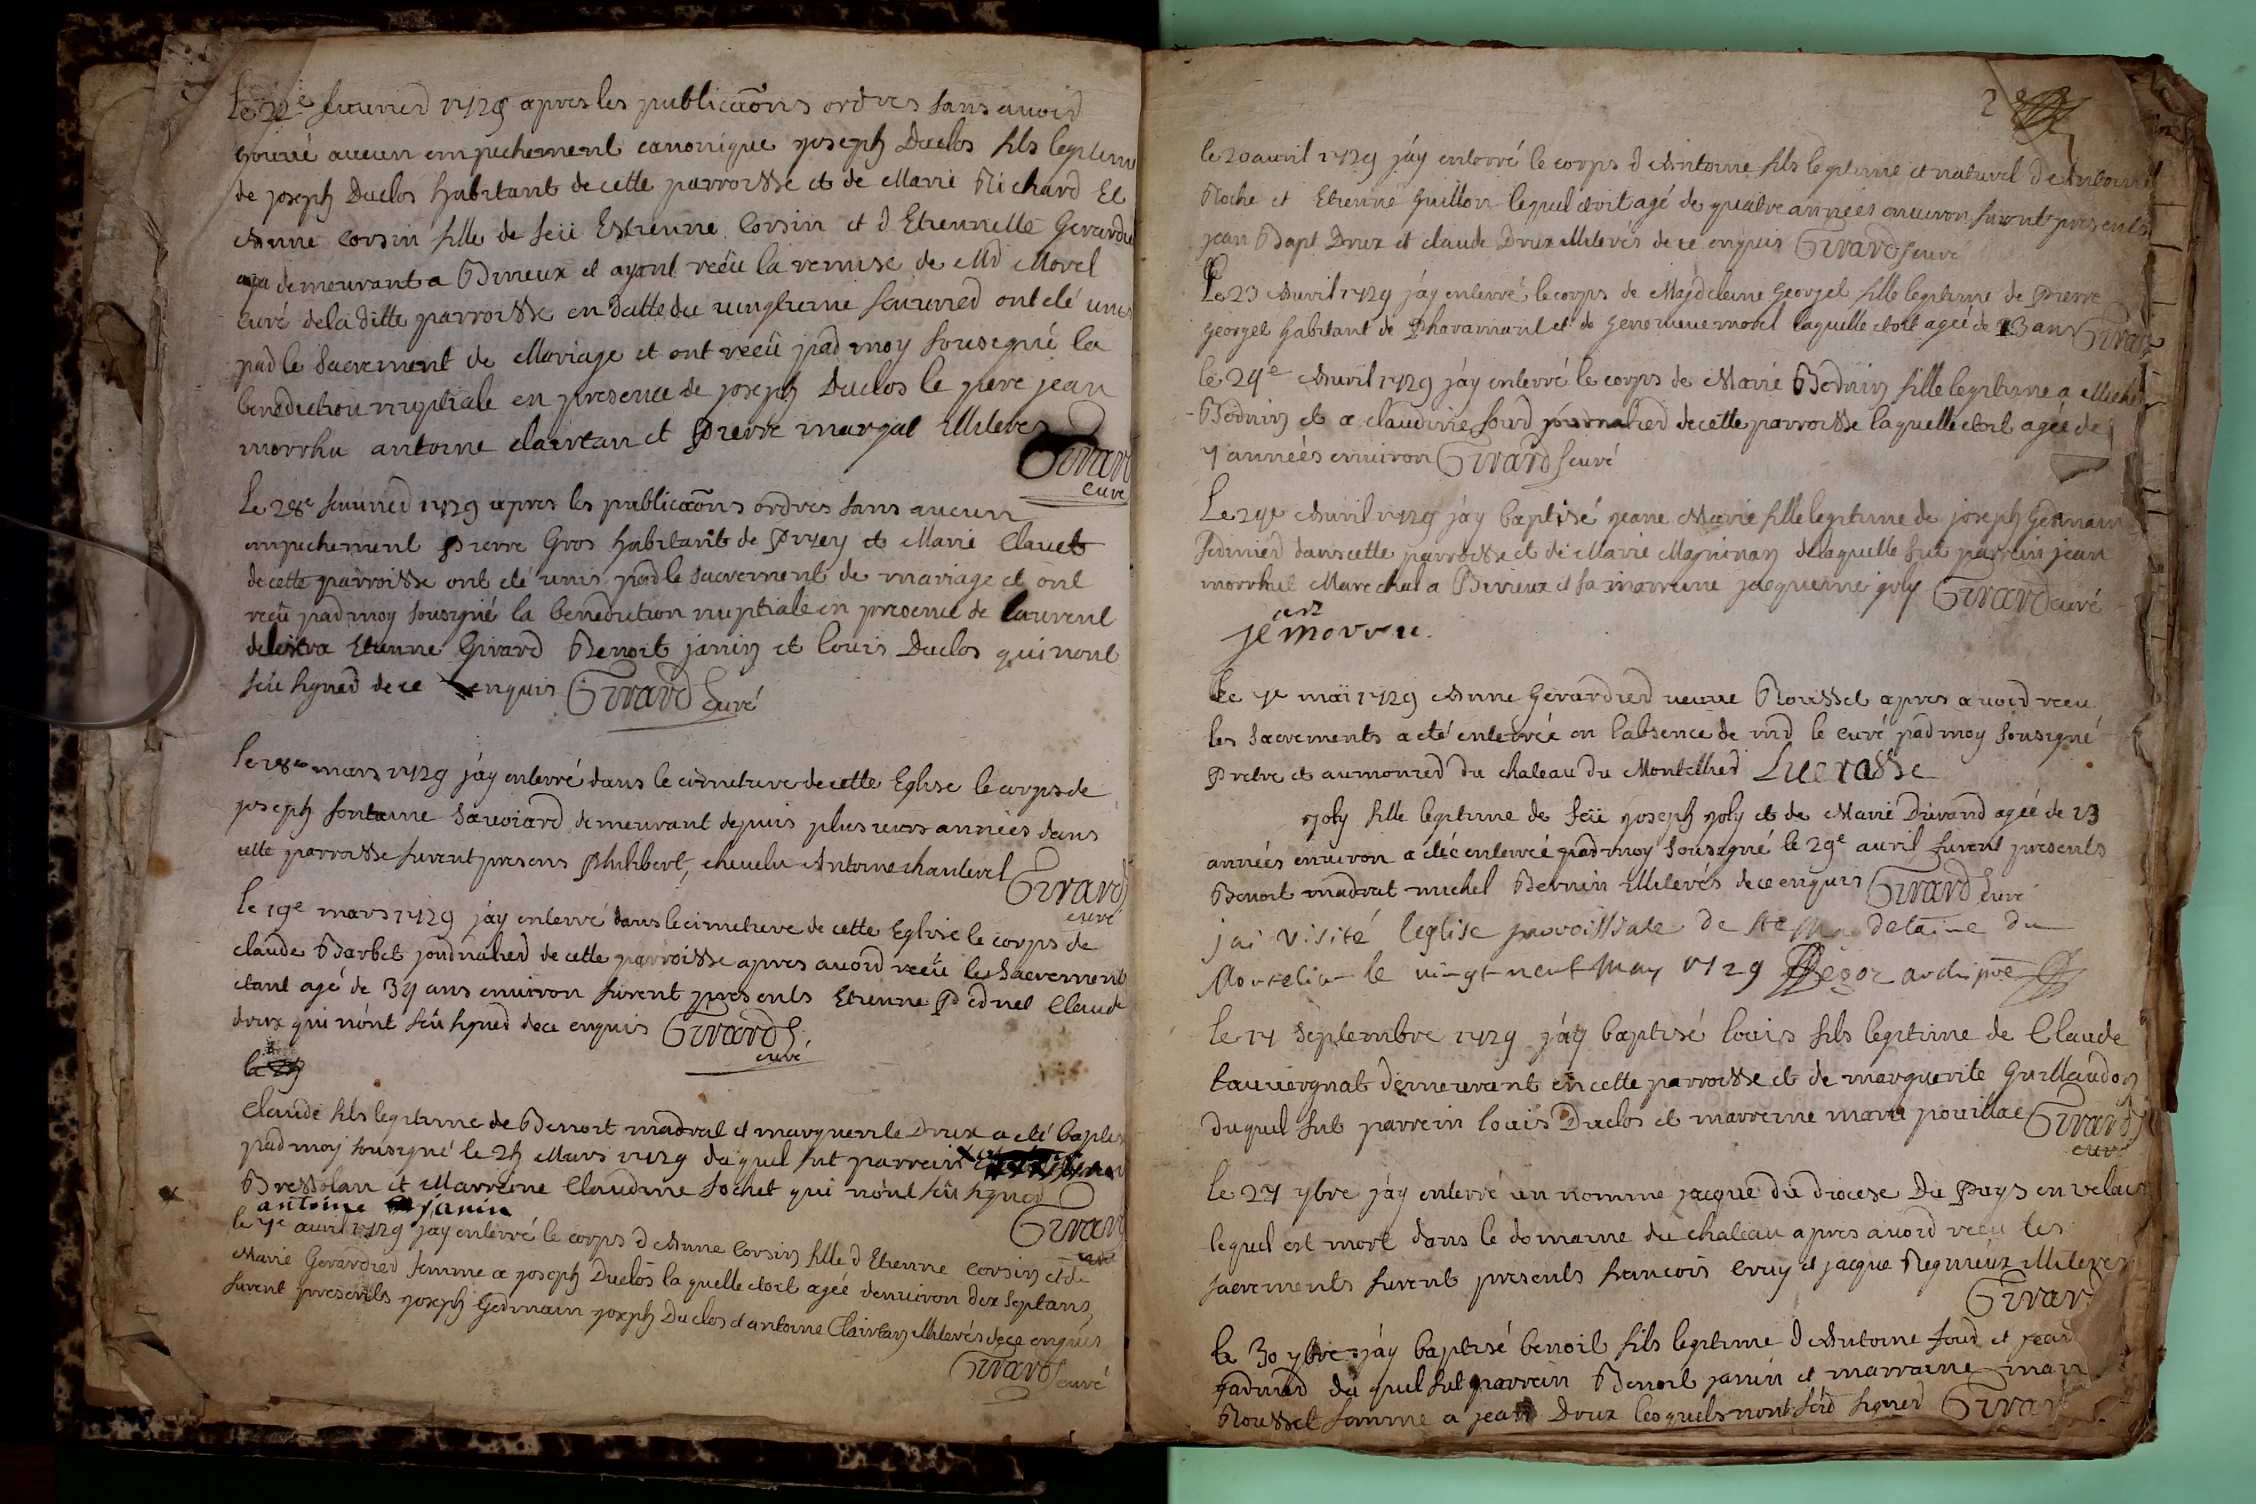 Le 22e feuvrier 1729 apres les publicaõns ordres sans avoir
trouvé aucun empechement canonique joseph Duclos fils legitime
de joseph Duclos habitant de cette parroisse et de Marie Richard Et
Anne Corsin fille de feü Estienne Corsin et d Etiennette Gerardie
demeurant a Birieux et ayant reçu la remise de Mr Morel
curé de la ditte parroisse en datte du vingtieme feuvrier ont eté unis
par le sacrement de Mariage et ont reçû par moy sousigné la
benediction nuptiale en presence de joseph Duclos le pere jean
morrhu antoine clairtan et pierre margat illiteres
Girard
curé
Le 28e feuvrier 1729 apres les publicaõns ordres sans aucun
empechement pierre Gros habitant de Prizy et Marie Clavet
de cette parroisse ont eté unis par le sacrement de mariage et ont
reçû par moy sousigné la benediction nuptiale en presence de laurent
Etienne Girard Benoit janin et louis Duclos qui nont
sçû signer de ce enquis Girard Curé
le 18e mars 1729 j'ay enterré dans le cimetiere de cette Eglise le corps de
joseph fontaine savoiard demeurant depuis plusieurs années dans
cette parroisse furent presens Philibert chevelu Antoine chanterel
Girard
curé
le 19e mars 1729 j'ay enterré dans le cimetiere de cette Eglise le corps de
claude Barbet journalier de cette parroisse apres avoir reçû les sacrements
etant agé de 34 ans environ furent presents Etienne Pernet Claude
drux qui n'ont sçû signer de ce enquis Girard
curé
Claude fils legitime de Benoit madrat et marguerite Drux a eté baptisé
par moy sousigné le 25 Mars 1729 duquel fut parrein
Bressolan et Marreine Claudine Sochet qui n'ont sçû signer
antoine janin
Girard
curé
le 7e avril 1729 j'ay enterré le corps d Anne Corsin fille d Etienne Corsin et de
Marie Gerardier femme a joseph Duclos la quelle etoit agée d'environ dix sept ans
furent presents joseph Germain joseph Duclos et antoine Clairtan illiterés de ce enquis
Girard curé
2e
le 20 avril 1729 j'ay enterré le corps d Antoine fils legitime et naturel de Antoine
Roche et Etienne Guillon lequel etoit agé de quatre années environ furent presents
jean Bapt Drux et claude Drux illiterés de ce enquis Girard curé
Le 23 Avril 1729 j'ay enterré le corps de Magdeleine Georget fille legitime de pierre
georget habitant de et de genevieve morel laquelle etoit agée de 13 ans Girard
le 24e Avril 1729 j'ay enterré le corps de Marie Bernin fille legitime a Michel
Bernin et a claudine sourd journalier de cette parroisse laquelle etoit agée de
7 années environ Girard curé
Le 29e Avril 1729 j'ay baptisé jeane Marie fille legitime de joseph Germain
fermier dans cette parroisse et de Marie Magninan de laquelle fut parrein jean
morrhut Marechal a Birieux et sa marreine jacqueme joly Girard curé
jean morru.
Le 7e maï 1729 Anne Gerardier veuve Roussel apres avoir reçu
les sacrements a eté enterrée en l'absence de mr le curé par moy sousigné
Pretre et aumonier du chateau du Montellier Lucrasse
joly fille legitime de feü joseph joly et de Marie Durand agée de 23
années environ a eté enterrée par moy sousigné le 29e avril furent presents
Benoit madrat michel Bernin illiterés de ce enquis Girard Curé
jai visité l'eglise parroissiale de ste Madelaine du
Montelier le vingt neuf may 1729 archiprê
le 14 septembre 1729 j'ay baptisé louis fils legitime de Claude
Lauvergnat demeurant en cette parroisse et de marguerite Guillaudon
duquel fut parrein louis Duclos et marreine marie pouillat Girard
curé
le 27 7bre j'ay enterré un nommé jacque du diocese Du Puys en velais
lequel est mort dans le domaine du chateau apres avoir reçu les
sacrements furent presents francois et jacque Regnieux illiterés
Girard
le 30 7bre j'ay baptisé benoit fils legitime d Antoine sour et jean
duquel fut parrein Benoit janin et marraine
Roussel femme a jean Drux lesquels n'ont sçû signer Girard